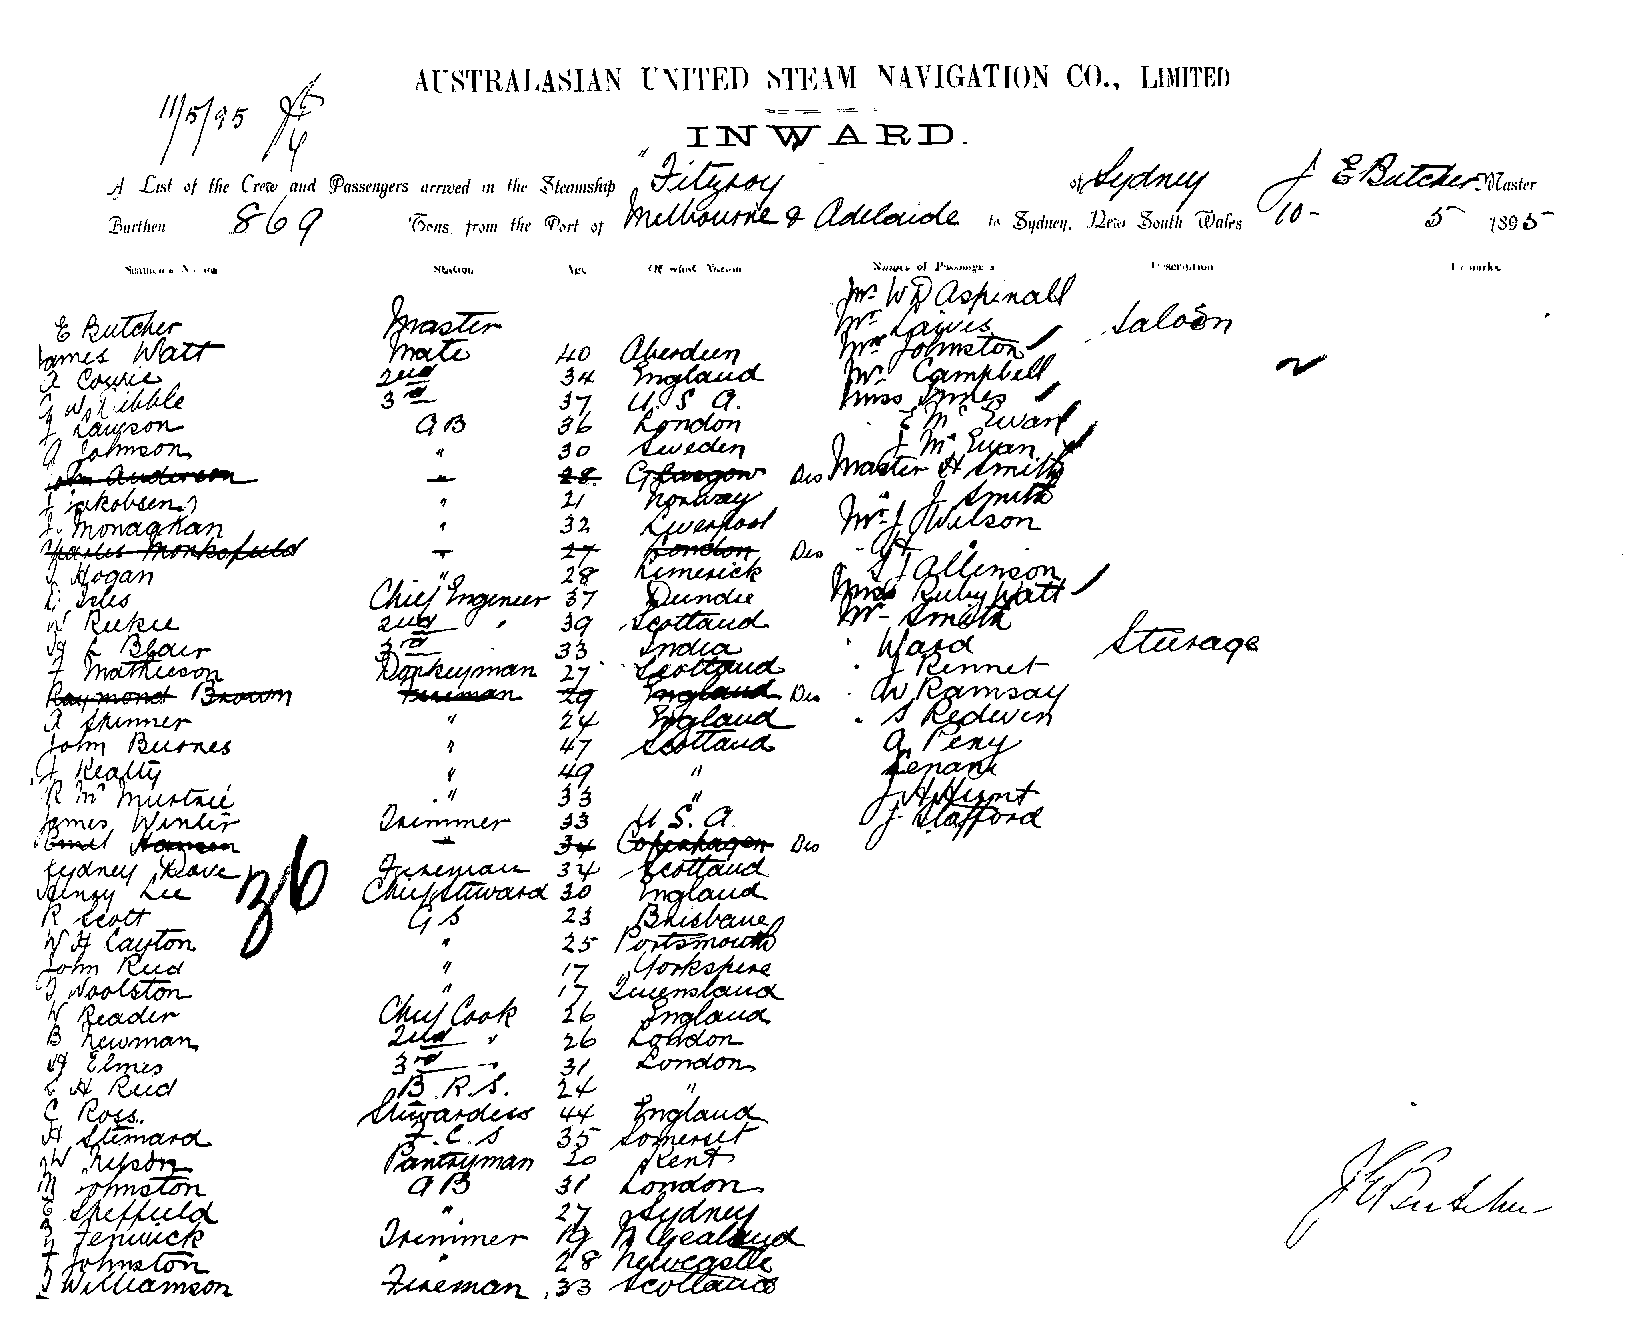 AUSTRALASIAN UNITED STEAM NAVIGATION CO., LIMITED
11/5/95
INWARD.
A List of the Crew and Passengers arrived in the Steamship "Fitzroy of Sydney J E Butcher Master
Burthen 869 Tons from the Port of Melbourne & Adelaide to Sydney, New South Wales 10 - 5 1895
Station Age Of what Nation Names of Passengers Description Remarks
Mr W D Aspinall
E Butcher Master Mr Saloon
James Watt Mate 40 Aberdeen Johnston
A Cowie 2nd 34 England Mr Campbell
3rd 37 U. S. A. Miss
J Lawson AB 36 London E Mc Ewan
A Johnson " 30 Sweden J Mc Ewan
John Anderson 28 Glasgow Des Master H Smith
J Jakobsen " 21 Norway J Smith
J. Monaghan " 32 Liverpool Mr J Wilson
Charles Monksfield 27 London Des
J Hogan " 28 Limerick Allinson
Isles Chief Engineer 37 Dundee Miss Ruby Watt
W Reekie 2nd " 39 Scotland Mr Smith
Blair 3rd 33 India Ward Steerage
F Mathieson Donkeyman 27 Scotland J Rennet
Raymond Brown Fireman 29 England Des W Ramsay
A Skinner " 24 England S Redever
John Burnes " 47 Scotland
J Kealty " 49 "
R Mc Murtrie " 33 " J H Hunt
James Winter Trimmer 33 U. S. A. J. Stafford
Hansen 34 Copenhagen Des
Sydney Fireman 34 Scotland
Henry Lee Chief Steward 30 England
36
R Scott G S 23 Brisbane
W H Cayton " 25 Portsmouth
John Reid " 17 Yorkshire
Woolston " 17 Queensland
W Reader Chief Cook 26 England
B Newman 2nd " 26 London
Elmes 3rd 31 London
E H Reid B. R. S. 24 "
C Ross. Stewardess 44 England
H F. C. S 35 Somerset
W Nelson Pantryman 20 Kent
M Johnston AB 31 London
E Sheffield " 27 Sydney
Fenwick Trimmer N Zealand
J E Butcher
Johnston " 28 Newcastle
Williamson Fireman 33 Scotland